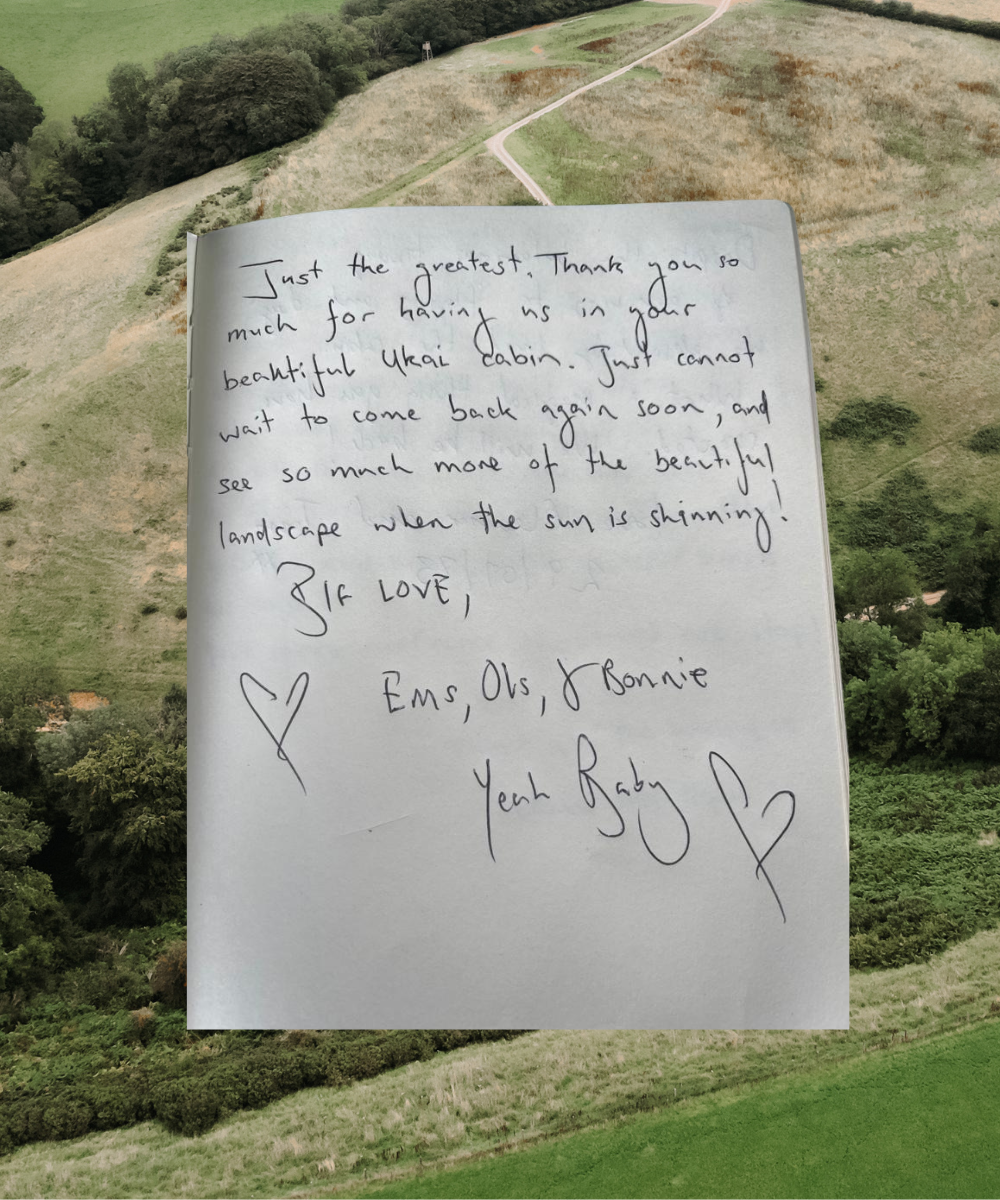 Just the greatest. Thank you so
much for having us in your
beautiful Ukal cabin. Just cannot
wait to come back again soon, and
see so much more of the beautiful
landscape when the sun is shinning!
BIG LOVE,
Ems, Ols, & Bonnie
Yeah Baby